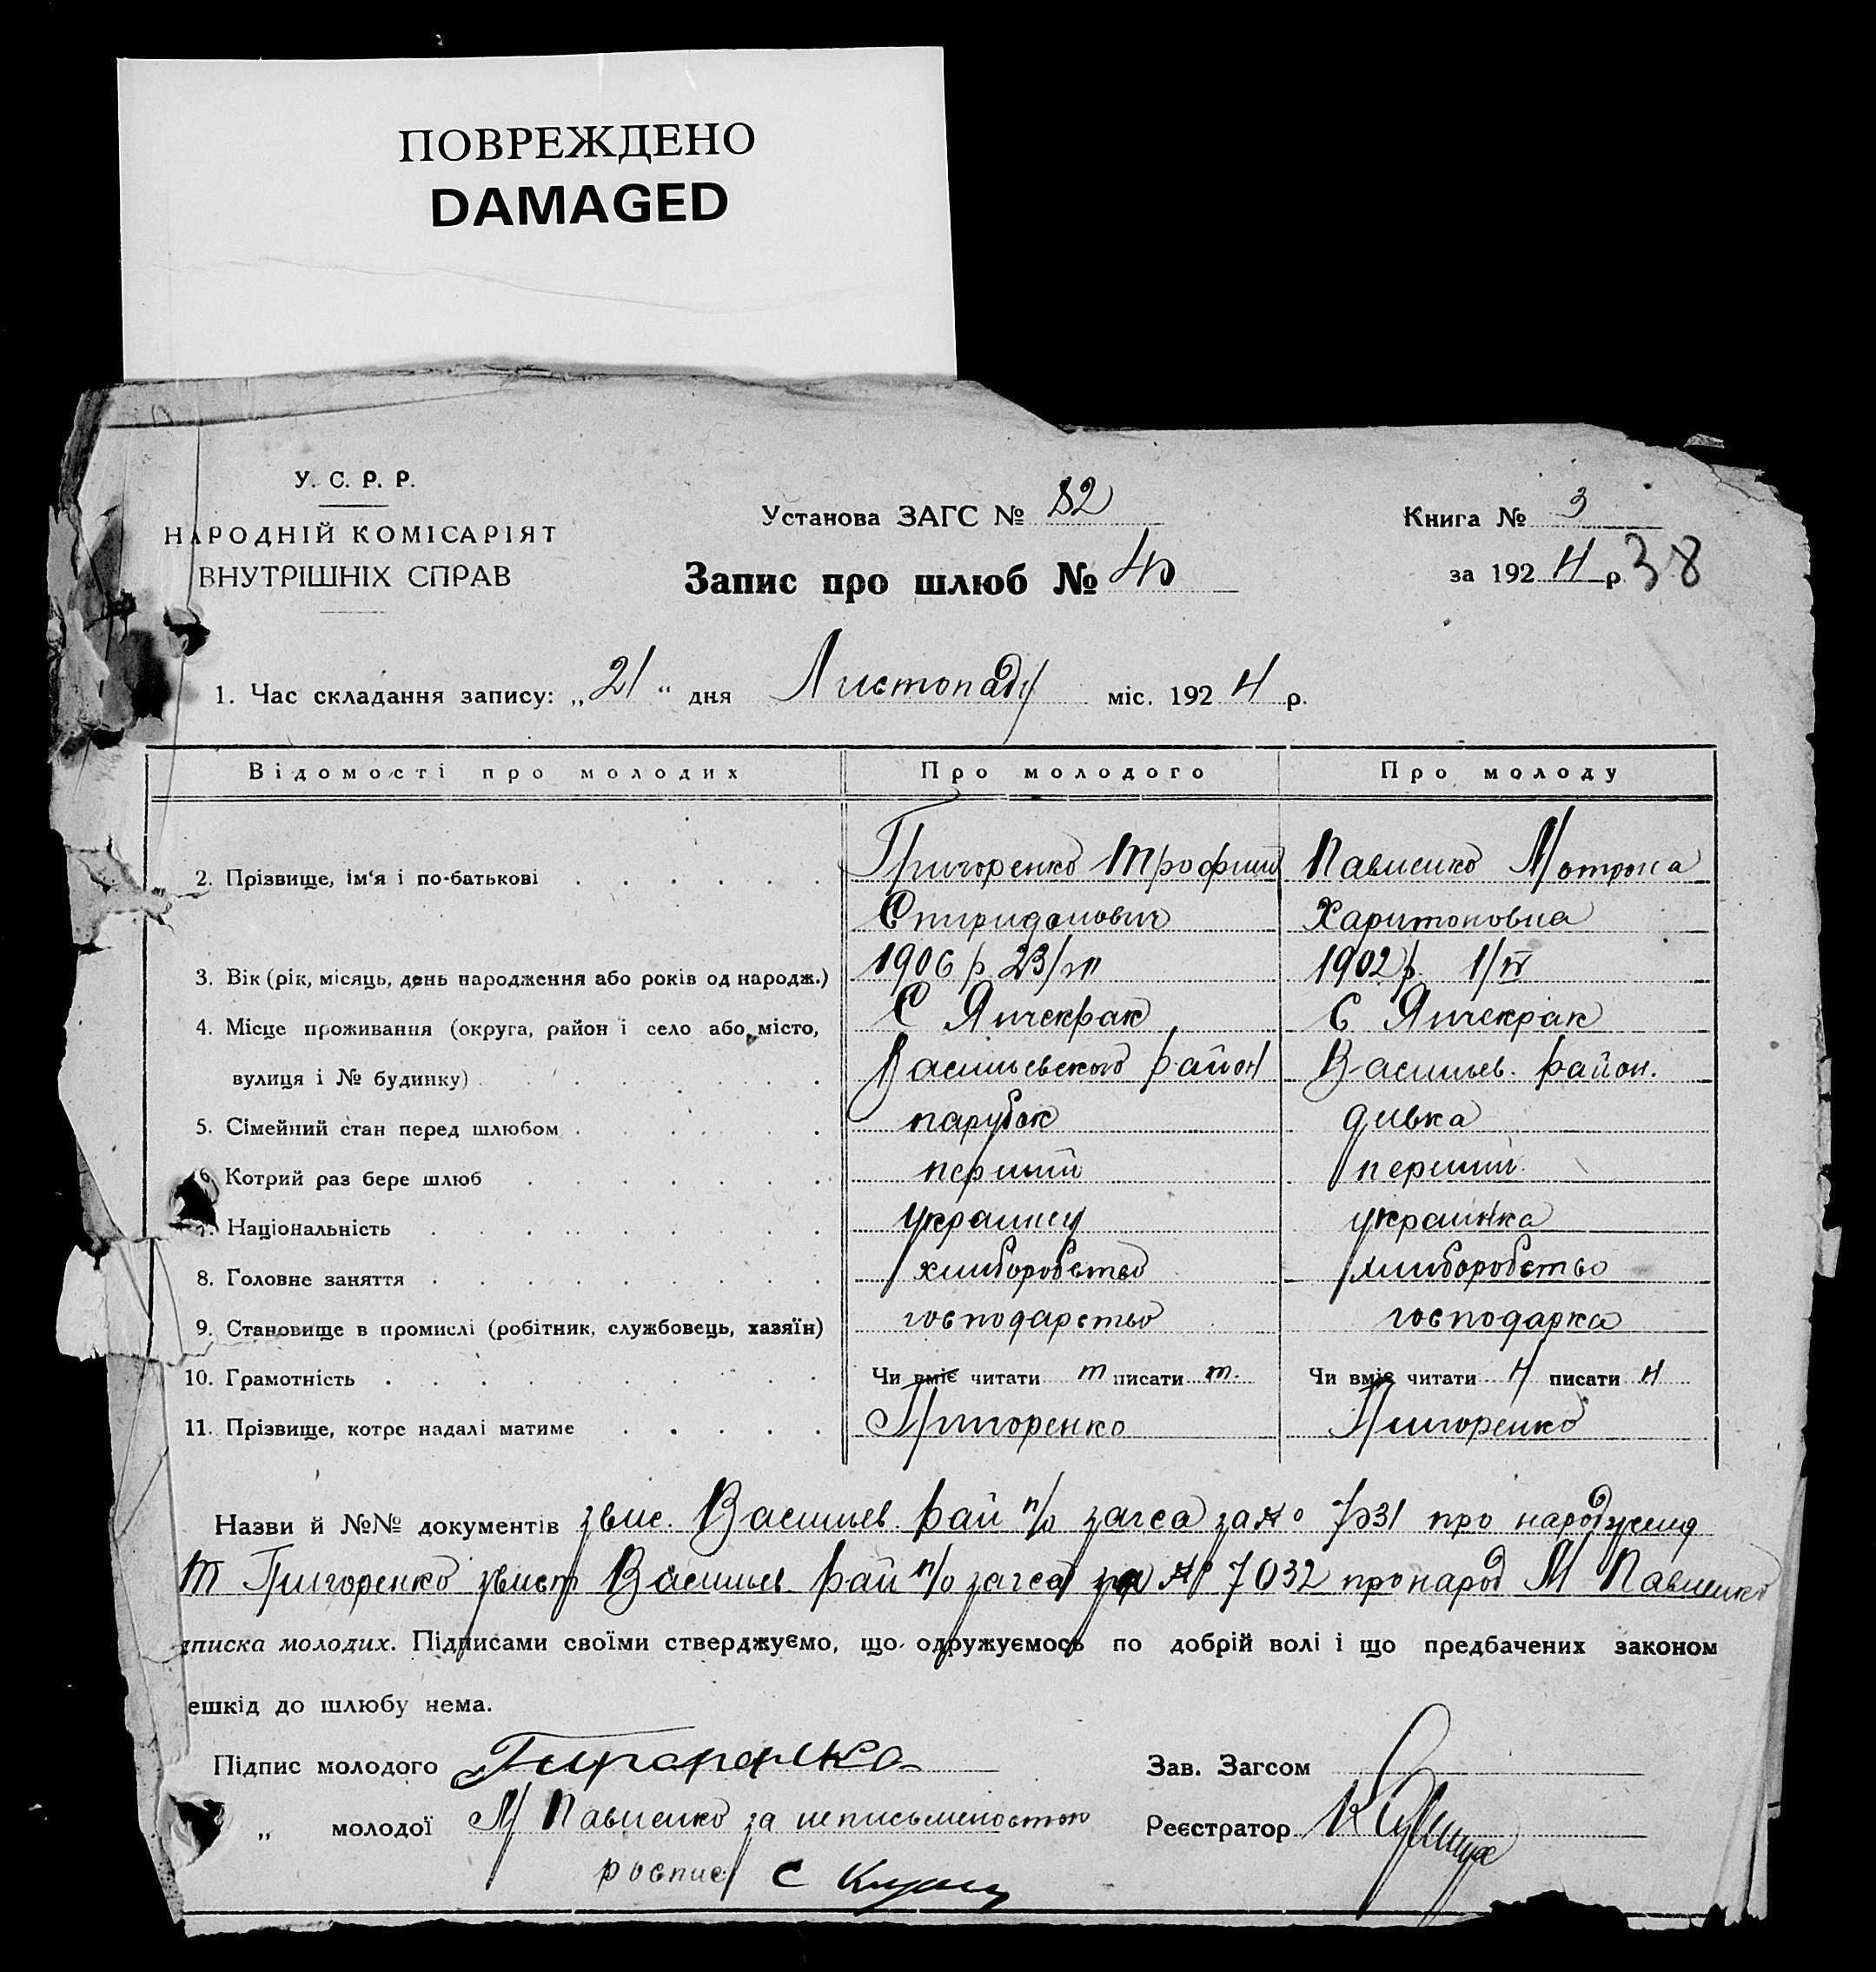 ПОВРЕЖДЕНО
DAMAGED
У. С. Р. Р.
НАРОДНІЙ КОМІСАРІЯТ
ВНУТРІШНІХ СПРАВ
Установа ЗАГС № 82
Запис про шлюб № 40
Книга № 3
за 1924 р 38
1. Час складання запису: „21“ дня Листопаду міс. 1924 р.
Відомості про молодих Про молодого Про молоду
2. Прізвище, ім'я і по-батькові Григоренко Трофим Павленко Мотрона
Спиридонович Харитоновна
3. Вік (рік, місяць, день народження або років од народж.) 1906 р 23/VII 1902 р. 1/IV
4. Місце проживання (округа, район і село або місто, С Янчекрак С Янчекрак
вулиця і № будинку) Васильевского район Васильев. район.
5. Сімейний стан перед шлюбом парубок дивка
6. Котрий раз бере шлюб перший перший
7. Національність украинец украинка
8. Головне заняття хлиборобство хлиборобство
9. Становище в промислі (робітник, службовець, хазяїн) господарство господарка
10. Грамотність Чи вміє читати т писати т. Чи вміє читати н писати н
11. Прізвище, котре надалі матиме Григоренко Григоренко
Назви й №№ документів звис. Васильев. рай п/о загса за № 7031 про народження
Т Григоренко звист Васильев рай п/о загса за № 7032 про народ М Павленко
дписка молодих. Підписами своїми стверджуємо, що одружуємось по добрій волі і що предбачених законом
ешкід до шлюбу нема.
Підпис молодого Зав. Загсом
„ молодої М Павленко за неписьменостю Реєстратор
роспис С